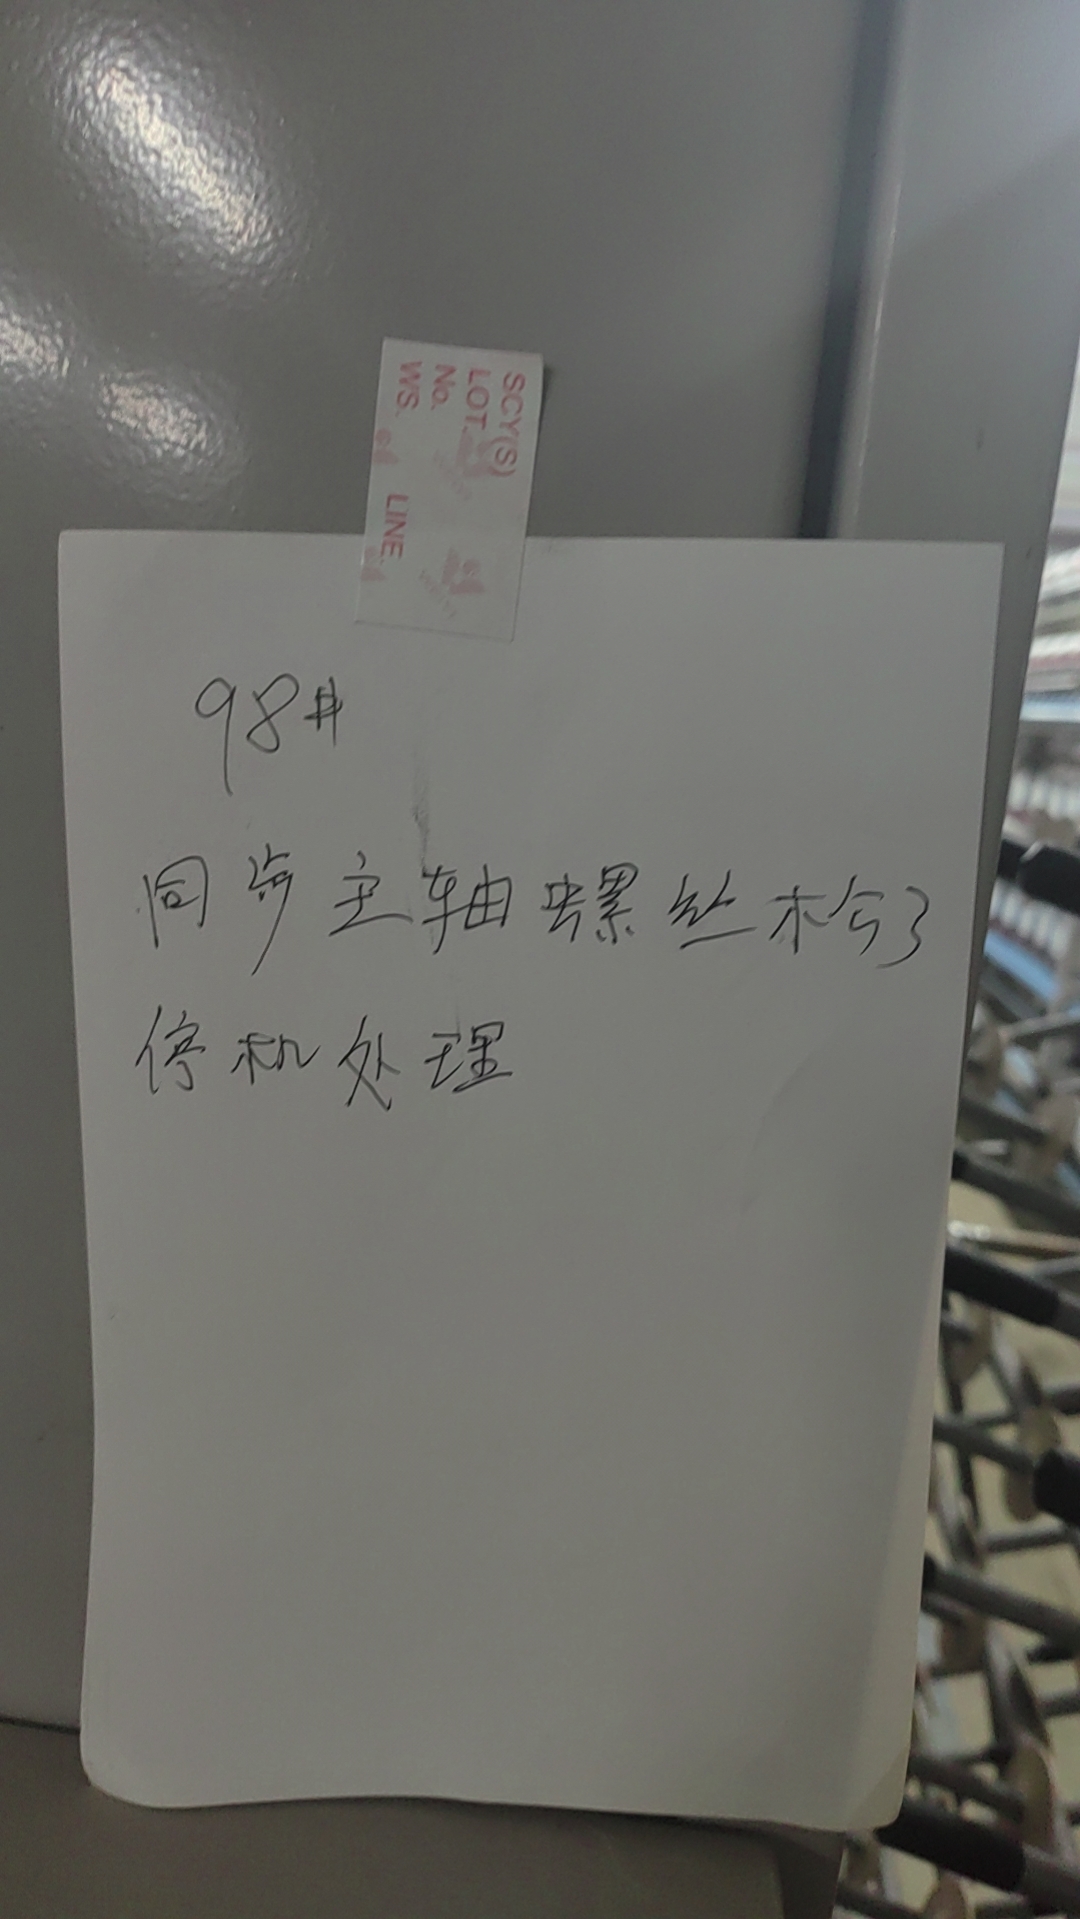 SCY(S)
LOT.
No.
WS. LINE.
98#
同步主轴螺丝松了
停机处理